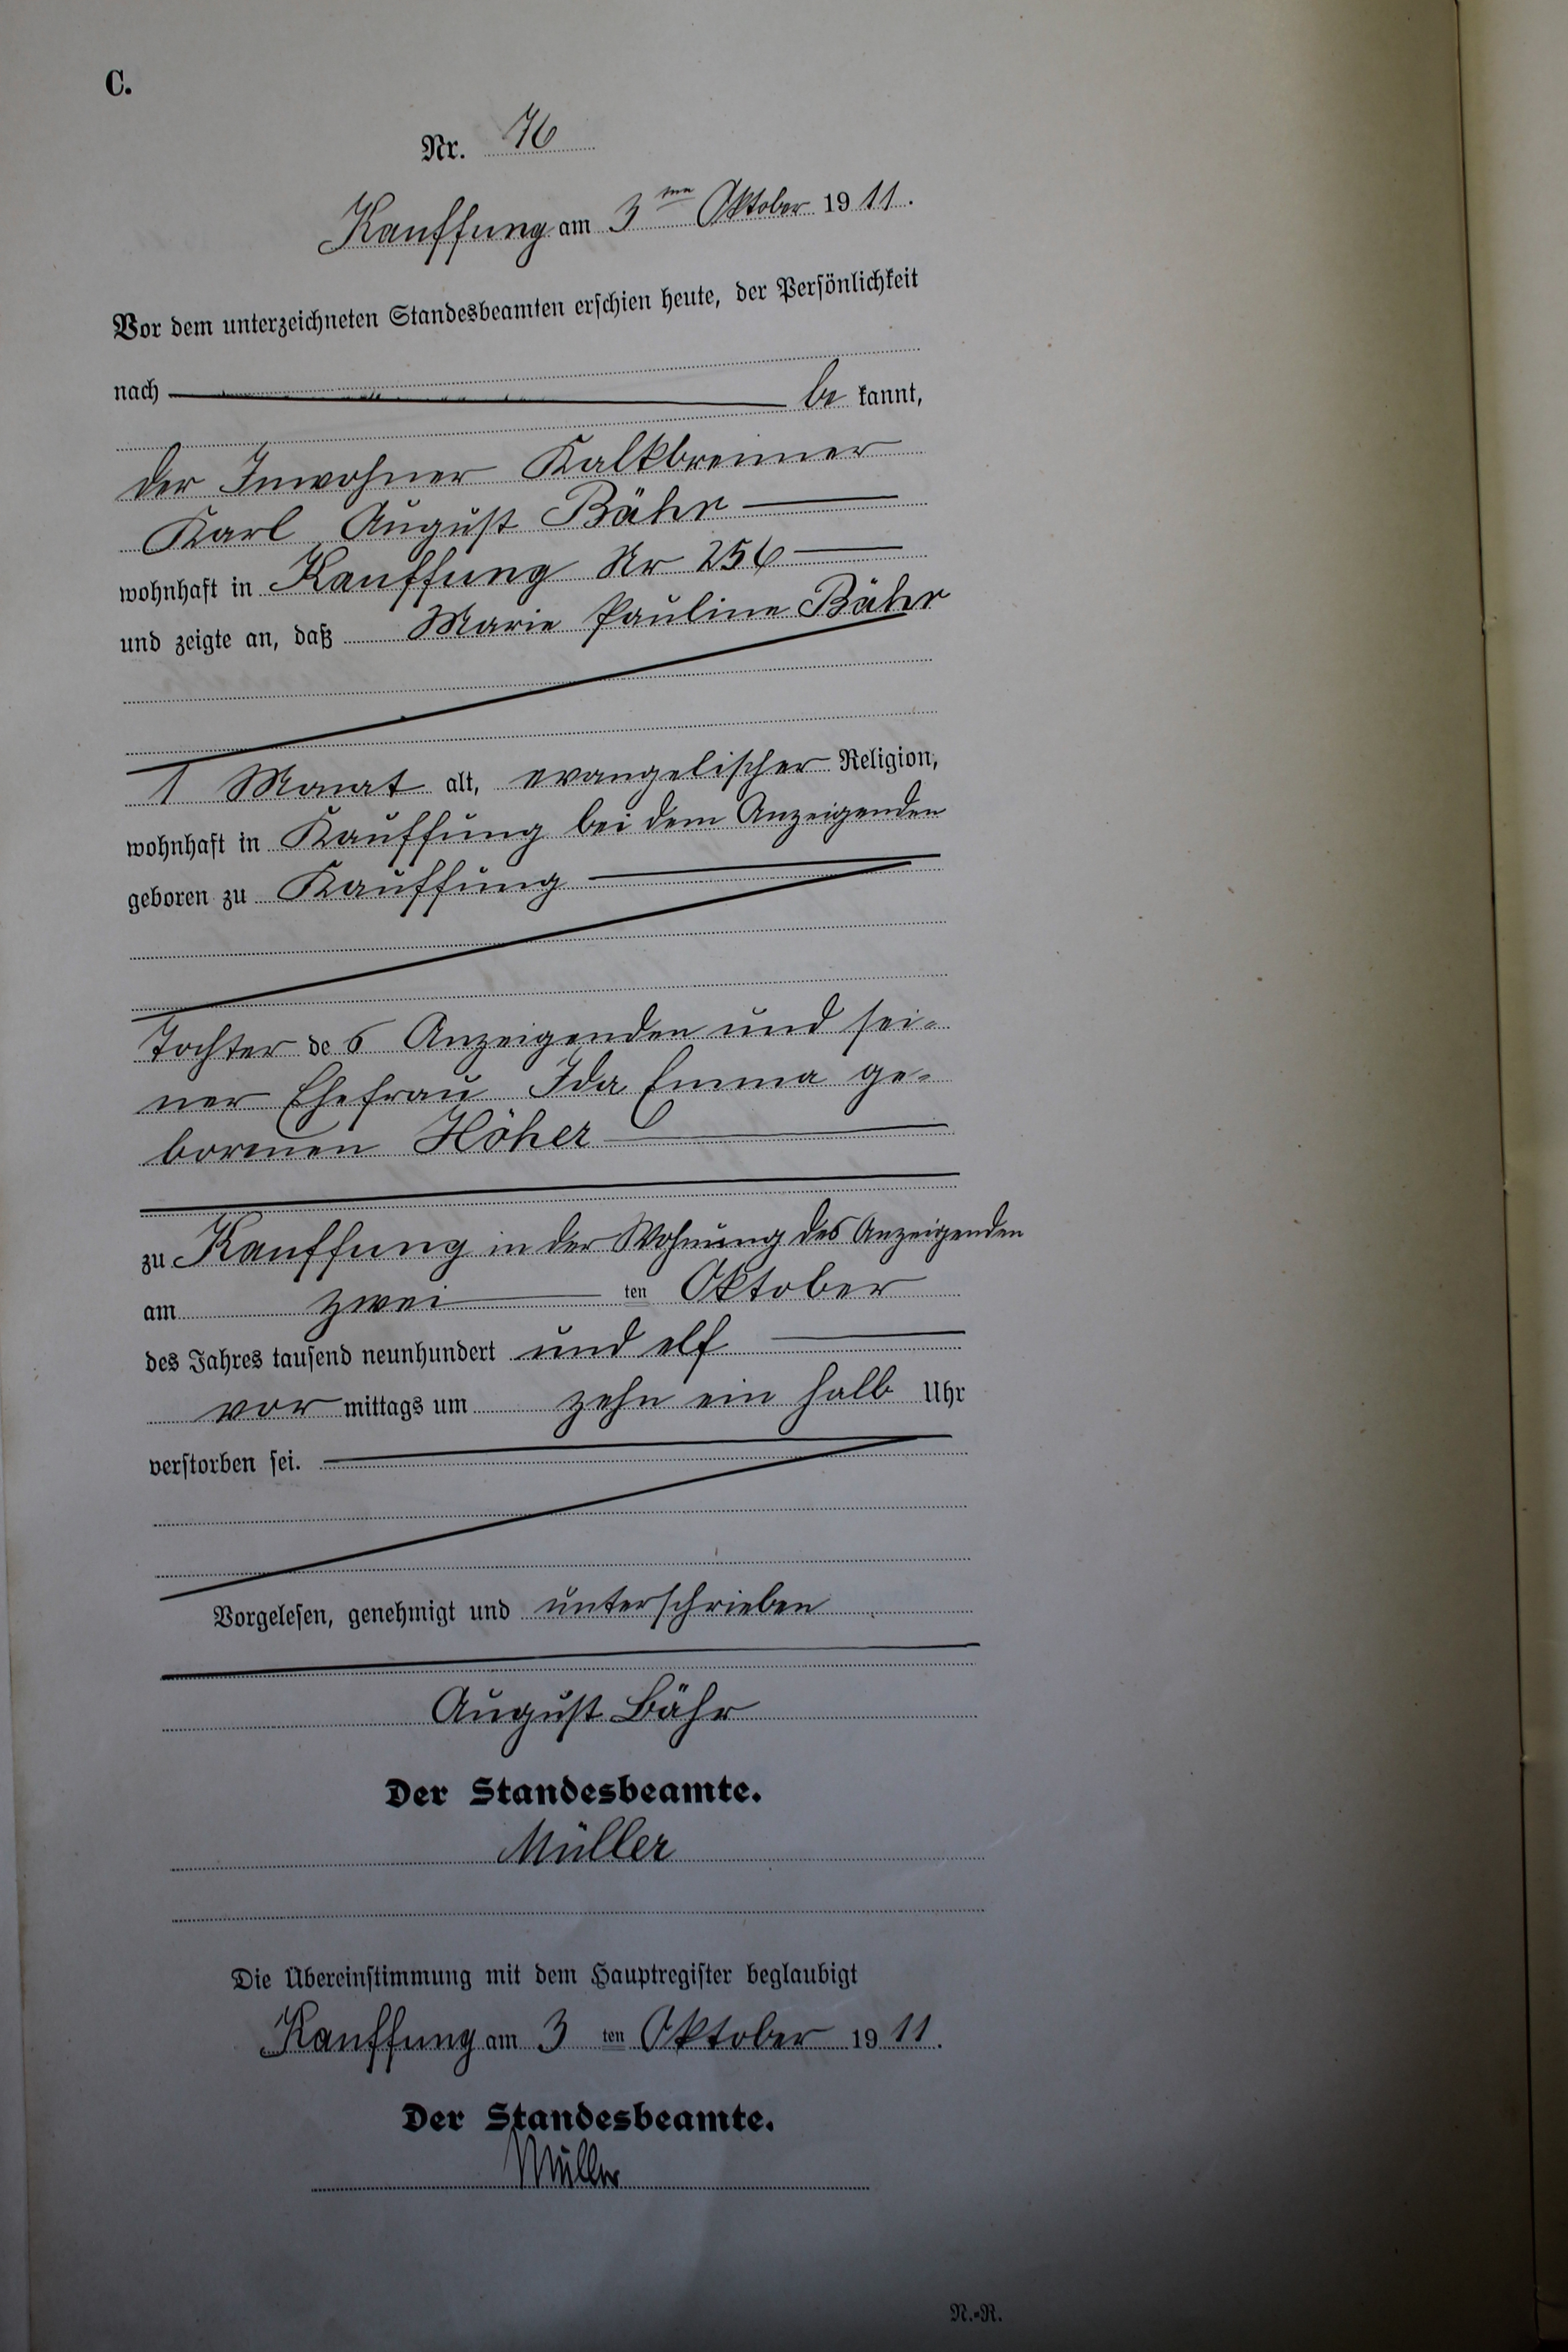 C.
Nr. 76
Kauffung am 3ten Oktober 1911.
Vor dem unterzeichneten Standesbeamten erschien heute, der Persönlichkeit
nach be kannt,
der Inwohner Kalkbrenner
Karl August Bähr
wohnhaft in Kauffung Nr 256
und zeigte an, daß Marie Pauline Bähr
1 Monat alt, evangelischer Religion,
wohnhaft in Kauffung bei dem Anzeigenden
geboren zu Kauffung
Tochter des Anzeigenden und sei-
ner Ehefrau Ida Emma ge-
borenen Höher
zu Kauffung in der Wohnung des Anzeigenden
am zwei ten Oktober
des Jahres tausend neunhundert und elf
vor mittags um zehn ein halb Uhr
verstorben sei.
Vorgelesen, genehmigt und unterschrieben
August Bähr
Der Standesbeamte.
Müller
Die Übereinstimmung mit dem Hauptregister beglaubigt
Kauffung am 3 ten Oktober 1911.
Der Standesbeamte.
Müller
N.-R.